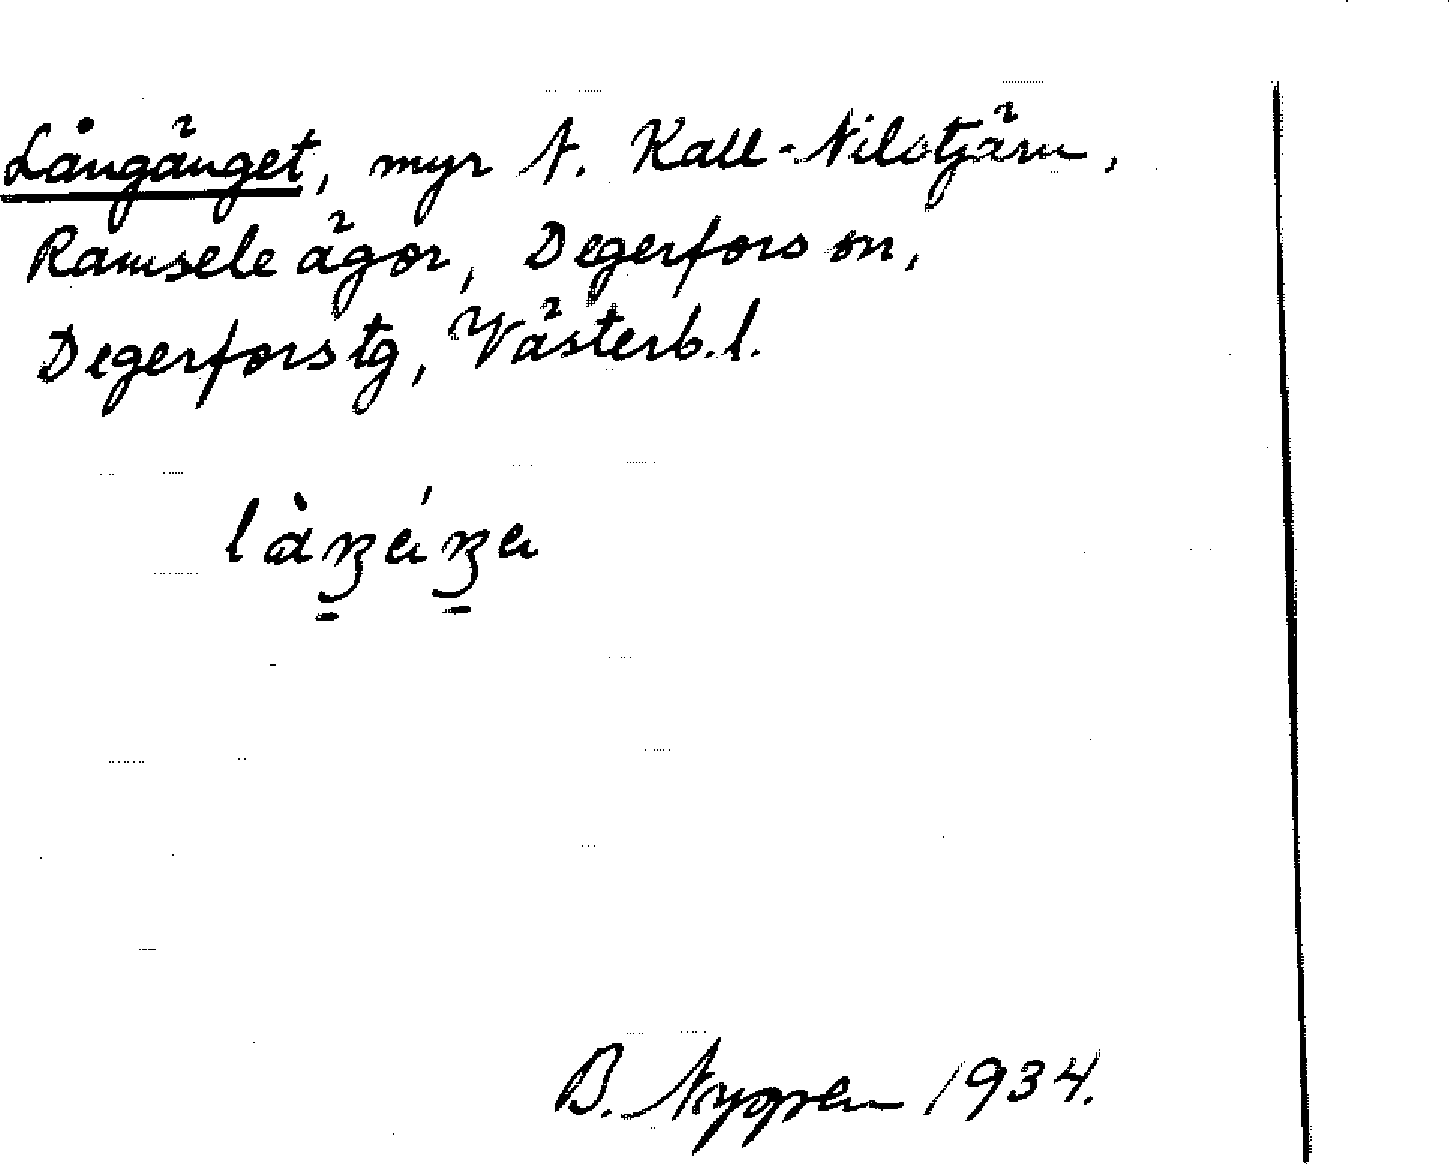 Långänget, myr N. Kall-Nilstjärn,
Ramsele ägor, Degerfors sn,
Degerfors tg, Västerb. l.
B. Nygren 1934.